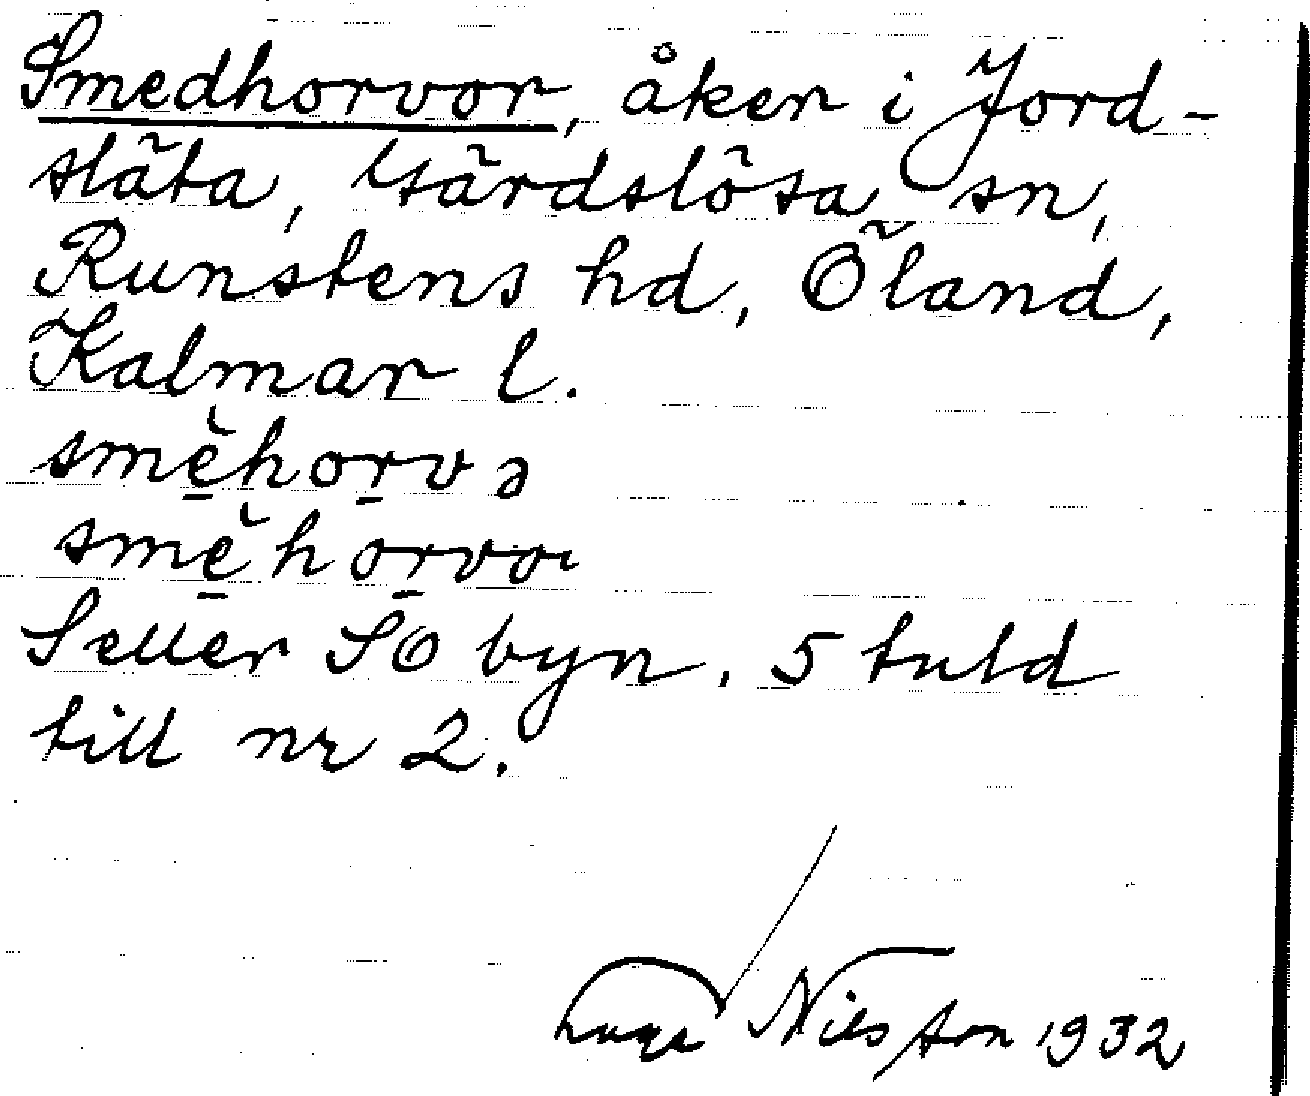 Smedhorvor, åker i Jord-
släta, Gärdslösa sn,
Runstens hd, Öland,
Kalmar l.
smĕ̱horv̱ə
smĕ̱horv̱ər
S eller SO byn. 5 tnld
till nr 2.
Nilsson 1932